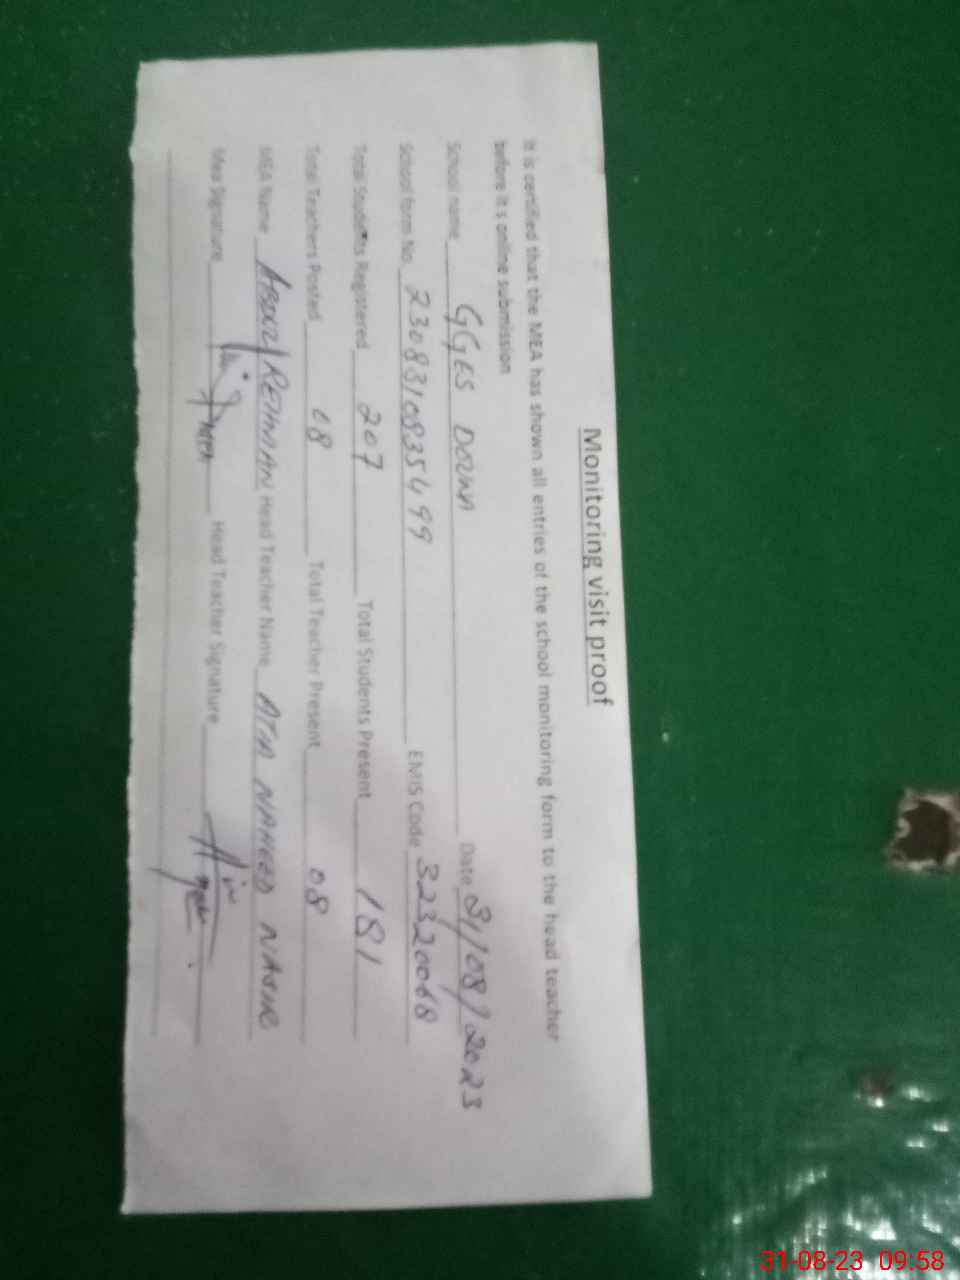 Monitoring visit proof
It is certified that the MEA has shown all entries of the school monitoring form to the head teacher
before it s online submission
School name GGES DOWNA Date 31/08/2023
School form No. 2308310835499 EMIS Code 32320068
Total Students Registered 207 Total Students Present 181
Total Teachers Posted 08 Total Teacher Present 08
MEA Name ABDUL REHMAN Head Teacher Name ATIA NAHEED NASIR
Mea Signature MEA Head Teacher Signature
31-08-23 09:58